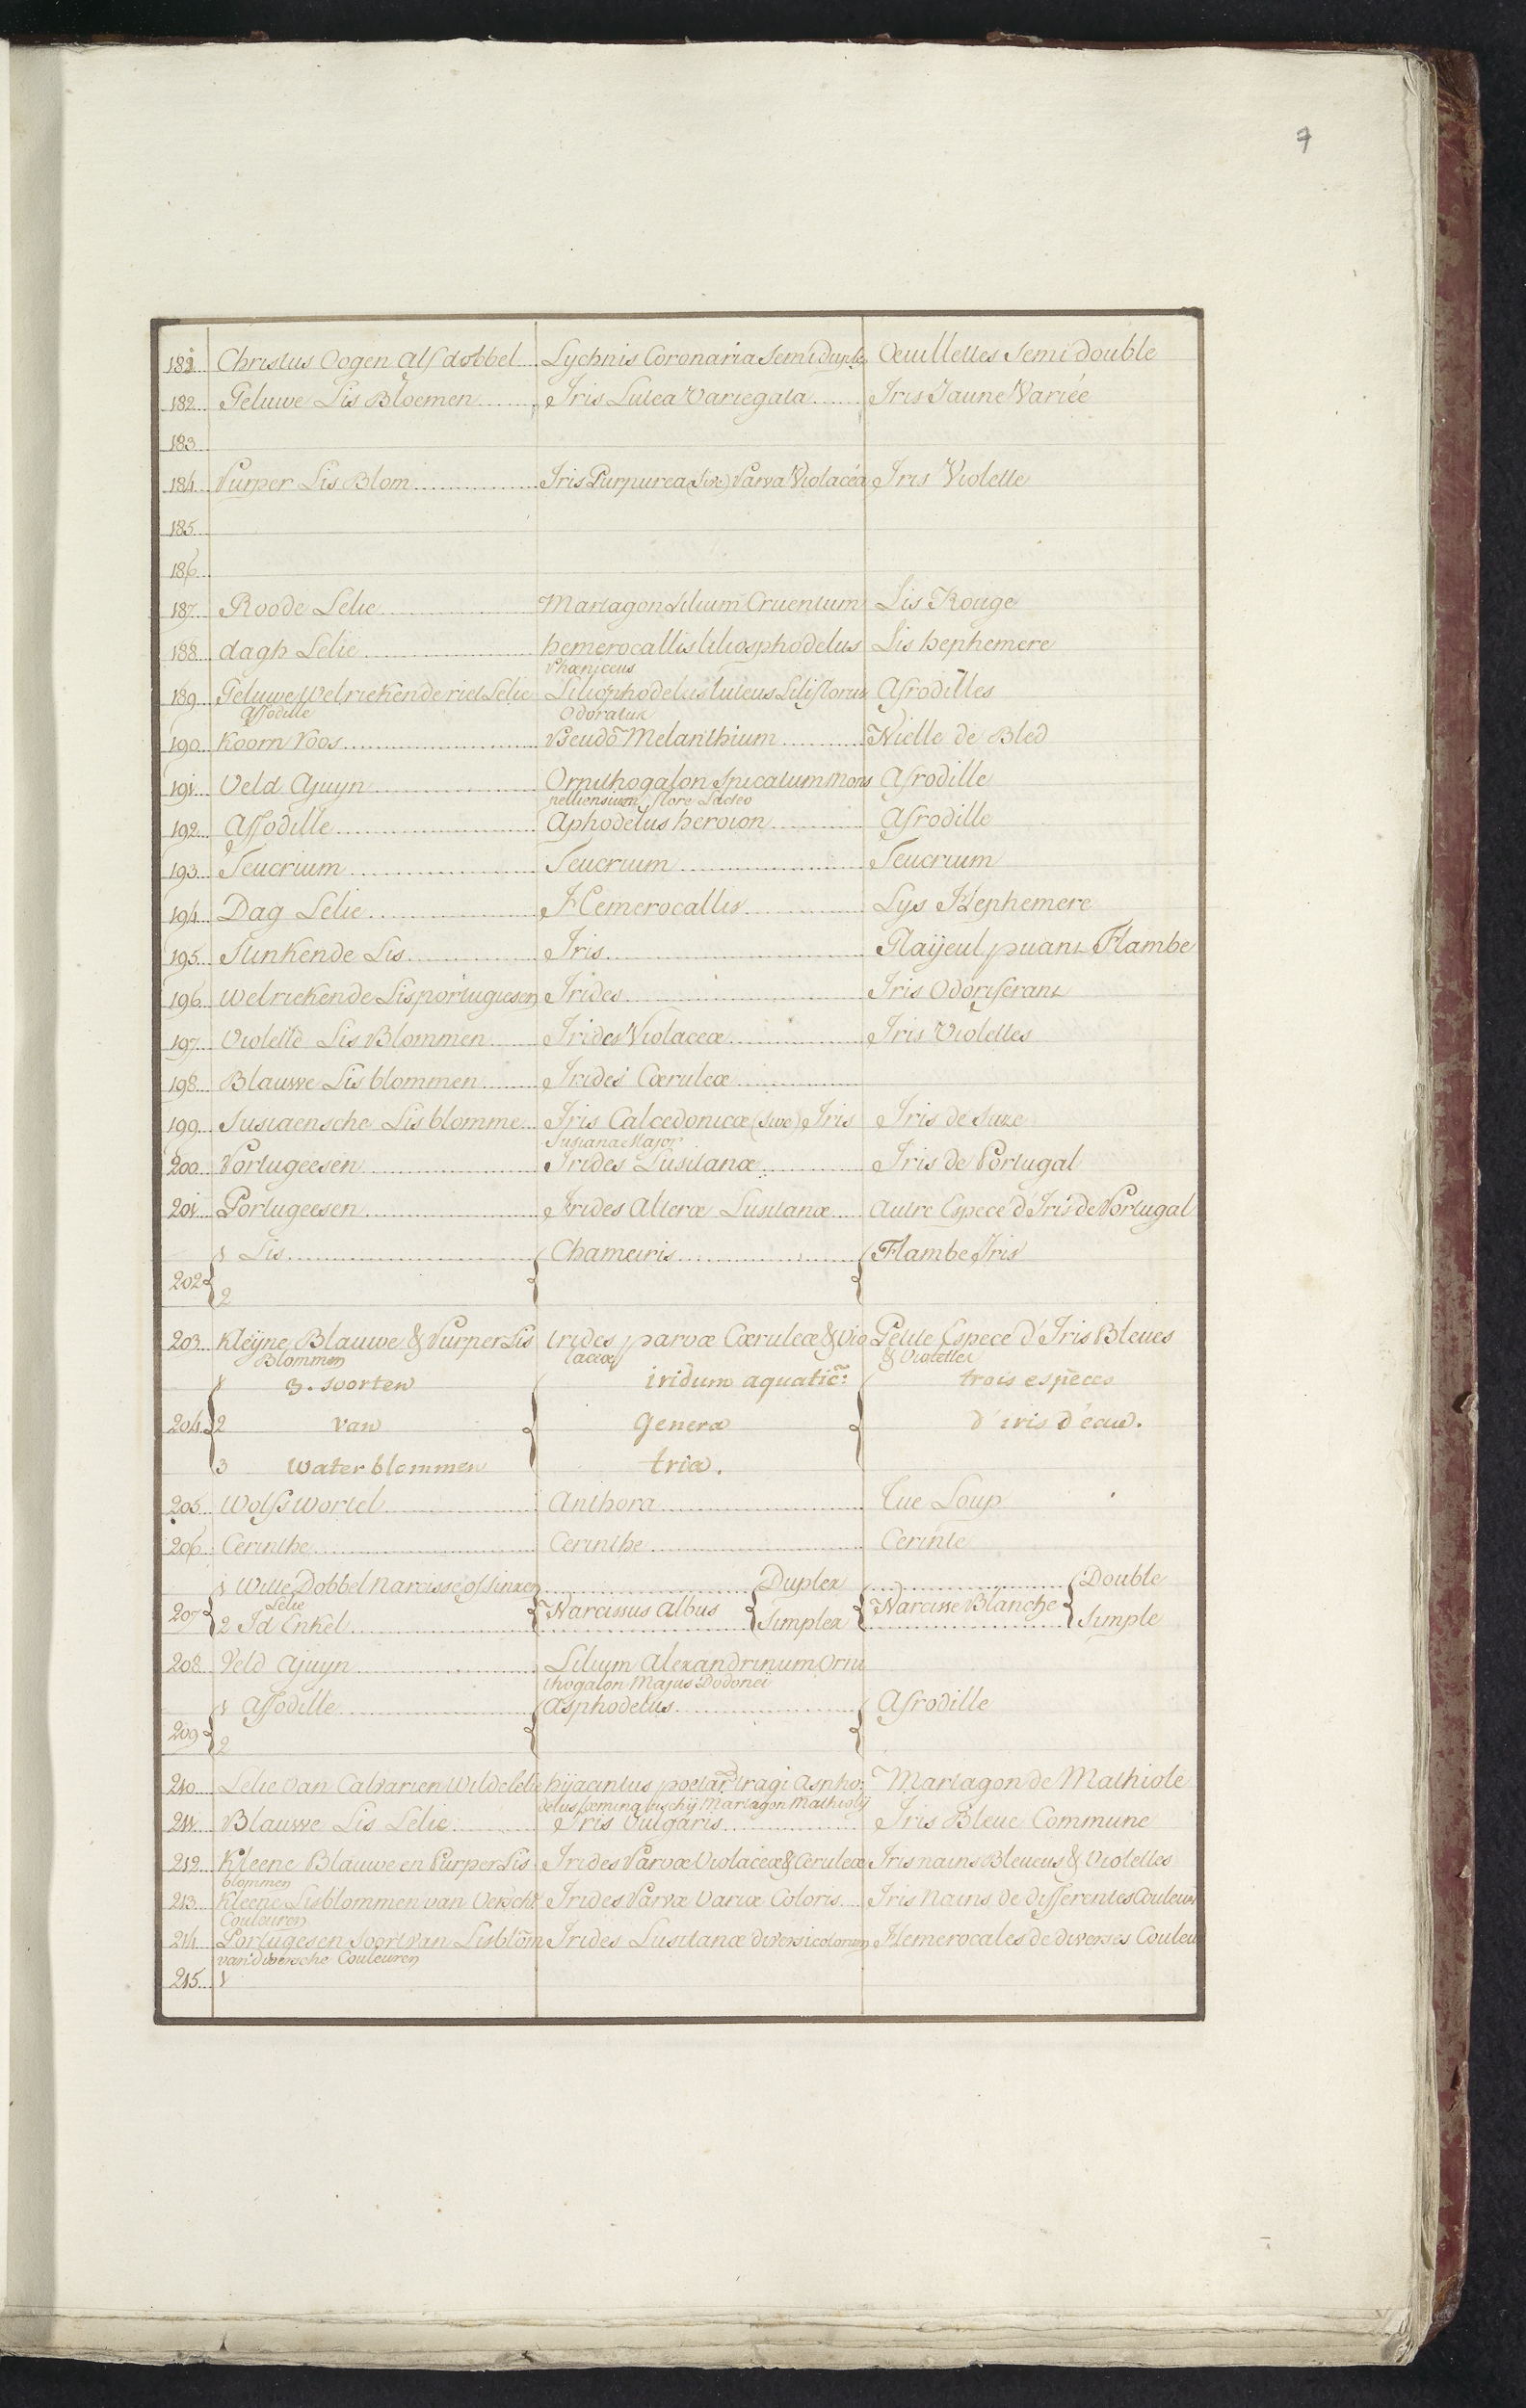 7
181 Christus Oogen Alf dobbel Lychnis Coronaria Semi Duplex Œuillettes Semi double
182 Geluwe Lis Bloemen Iris Lutea Variegata Iris Jaune Variée
183
184 Purper Lis Blom Iris Purpurea (Sive) Parva Violacéa Iris Violette
185
186
187 Roode Lelie Martagon Lilium Cruentum Lis Rouge
188 dagh Lelie hemerocallis liliosphodelus Lis hephemere
Phœniceus
189 Geluwe Welriekende riet Lelie Liliosphodelus luteus Liliflorus Afrodilles
Affodille Odoratus
190 Koorn Roos Pseudo Melanthium Nielle de Bled
191 Veld Ajuyn Ornithogalon Spicatum Mons Afrodille
pelliensium flore Lacteo
192 Affodille Aphodelus heroion Afrodille
193 Teucrium Teucrium Teucrium
194 Dag Lelie Hemerocallis Lys Hephemere
195 Stinkende Lis Iris Glaÿeul puant Flambe
196 Welriekende Lis portugiesen Irides Iris Odoriferant
197 Violette Lis Blommen Irides Violaceæ Iris Violettes
198 Blauwe Lis blommen Irides Cœruleæ
199 Susiaensche Lis blomme Iris Calcedonicæ (Sive) Iris Iris de Suze
Susiana Major
200 Portugeesen Irides Lusitanæ Iris de Portugal
201 Portugeesen Irides Alteræ Lusitanæ Autre Espece d'Iris de Portugal
1 Lis Chameiris Flambe Iris
202
2
203 Kleÿne Blauwe & Purper Lis Irides parvæ Cœruleæ & Vio Petite Espece d'Iris Bleues
Blommen laceæ & Violettes
1 3. soorten iridum aquatic: trois especes
204 2 van Genera d'iris d'eau.
3 Water blommen tria.
205 Wolfs Wortel Anthora Tue Loup
206 Cerinthe Cerinthe Cerinte
1 Witte Dobbel Narcisse of Sinxen Duplex Double
Lelie
207 Narcissus Albus Narcisse Blanche
2 Id Enkel Simplex Simple
208 Veld Ajuyn Lilium Alexandrinum Orni
thogalon Majus Dodonei
1 Affodille Asphodelus Afrodille
209
2
210 Lelie Van Calvarien Wilde lelie hÿacintus poetar. tragi Aspho: Martagon de Mathiole
delus fœmina Martagon Mathiolÿ
211 Blauwe Lis Lelie Iris Vulgaris Iris Bleue Commune
212 Kleene Blauwe en Purper Lis Irides Parvæ Violaceæ & Ceruleæ Iris nains Bleueus & Violettes
blommen
213 Kleene Lisblommen van Versch Irides Parvæ Variæ Coloris Iris Nains de differentes Couleur
Couleuren
214 Portugesen Soort van Lisblom Irides Lusitanæ diversicolorum Hemerocales de diverses Couleu
van diversche Couleuren
215 1